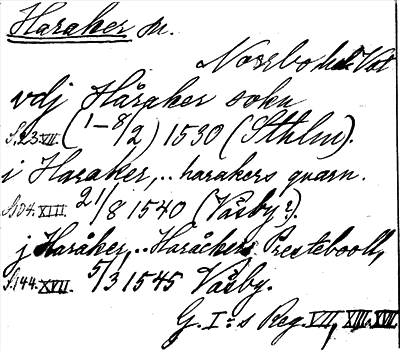 Haraker sn.
Norrbo hd. Vst
vdj Håraker sokn
S. 23. VII. (1–8/2) 1530 (Sthlm).
i Haraker, .. harakers quarn.
S. 104. XIII. 21/8 1540 (Väsby?).
j Haråker, .. Haråckers Prestebooll,
S. 144. XVII. 5/3 1545 Väsby.
G. I:s Reg. VII, XIII. XVII.